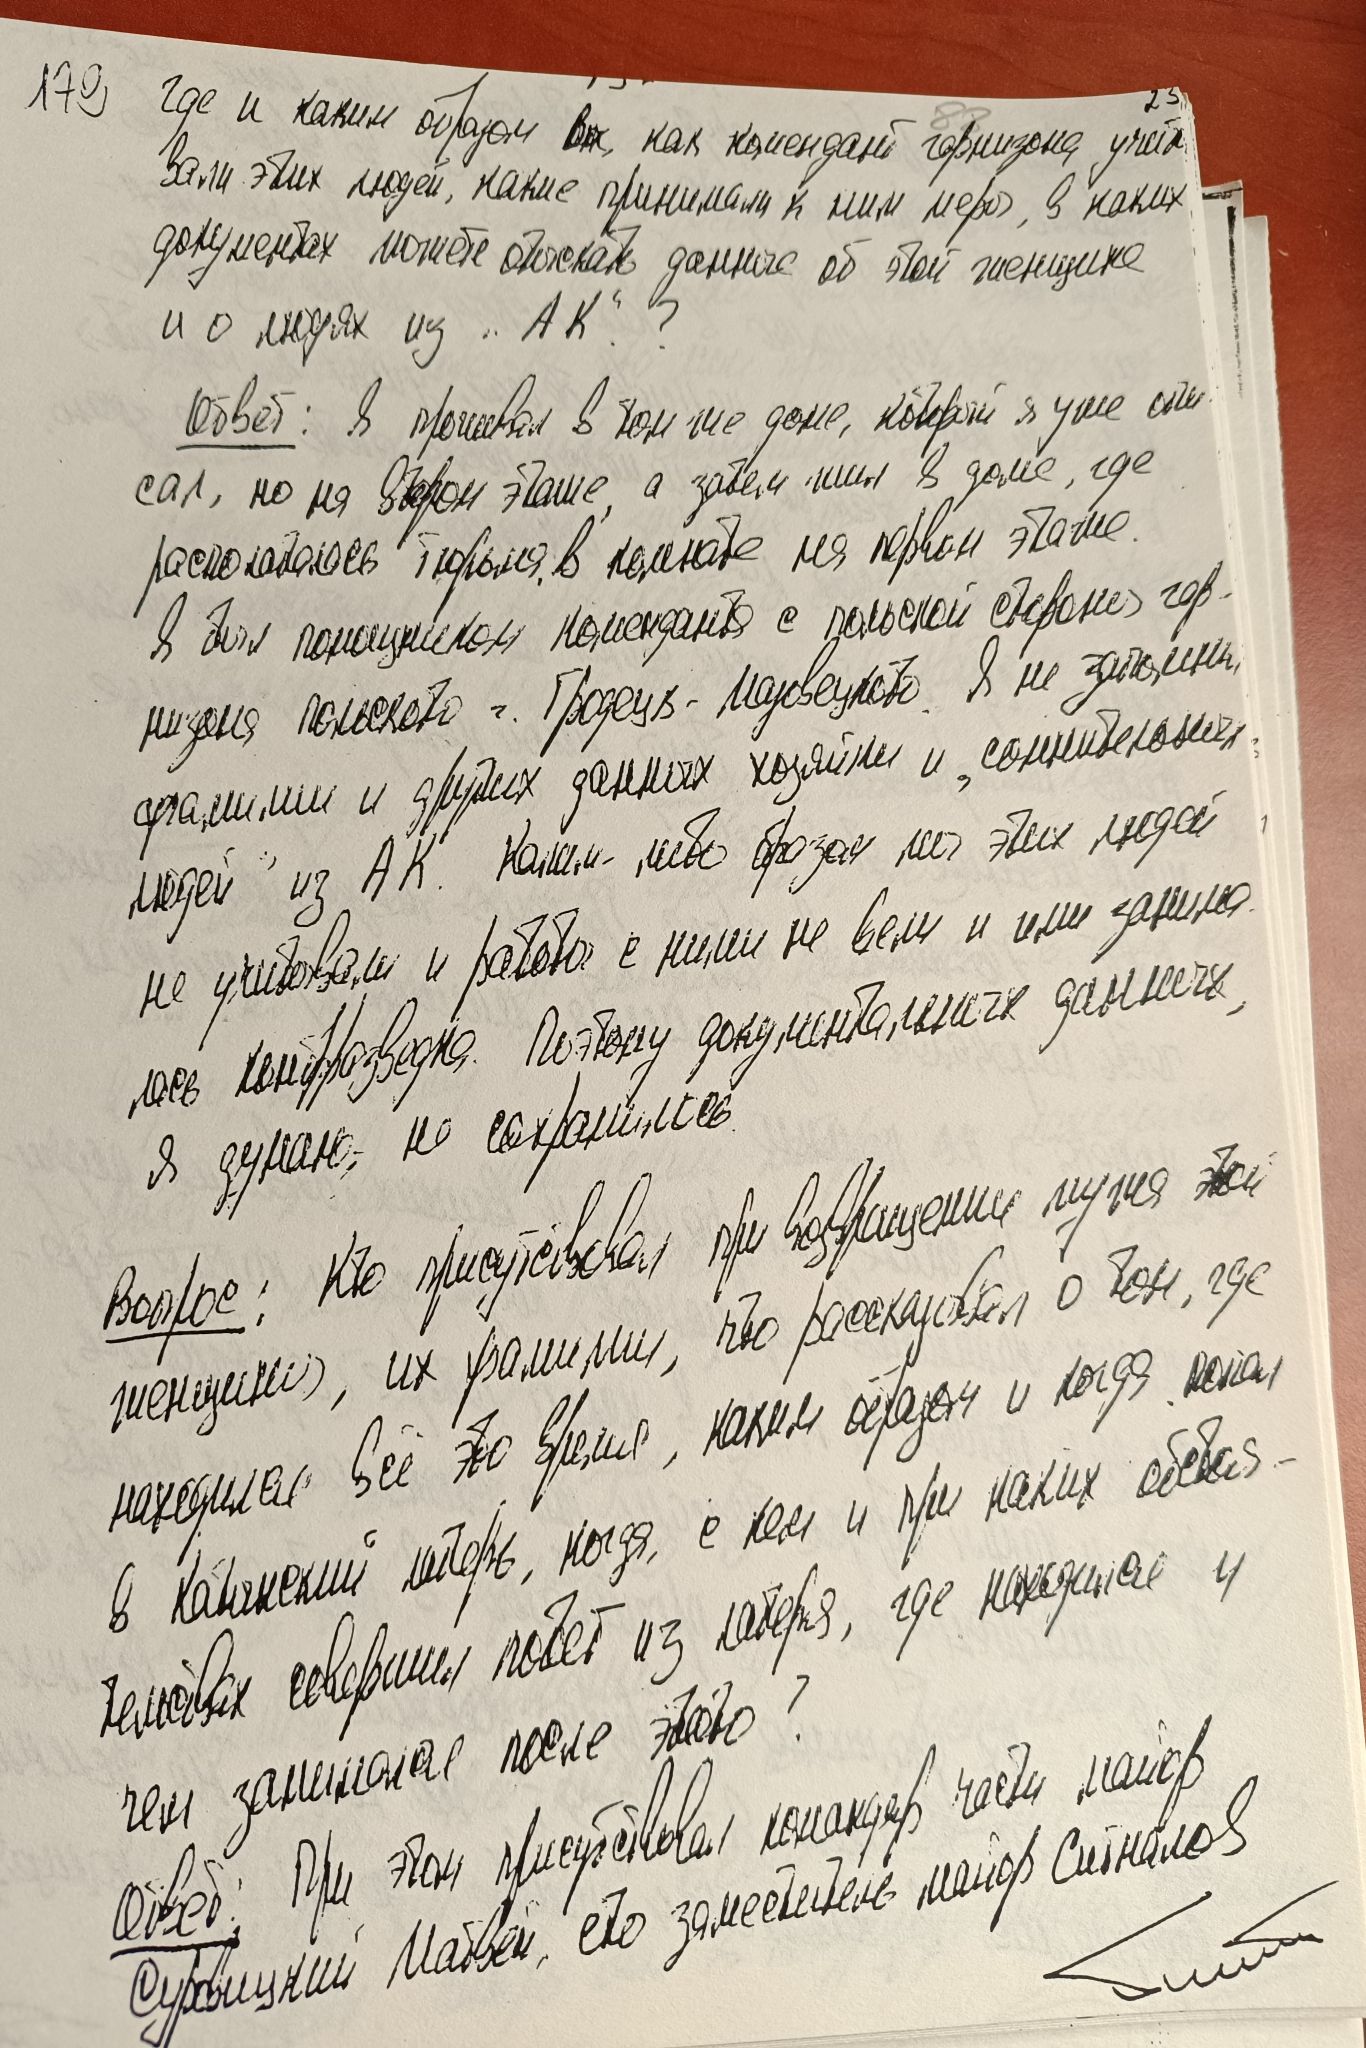 179
25
88
Где и каким образом вы, как комендант гарнизона учиты
вали этих людей, какие принимали к ним меры, в каких
документах можете отыскать данные об этой женщине
и о людях из „АК"?
Ответ: Я проживал в том же доме, который я уже опи-
сал, но на втором этаже, а затем жил в доме, где
располагалась тюрьма, в комнате на первом этаже.
Я был помощником коменданта с польской стороны гар-
низона польского г. Гродецк-Мазовецкого. Я не запомнил
фамилии и других данных хозяйки и „сомнительных
людей" из АК. Каким-либо образом мы этих людей
не учитывали и работы с ними не вели и ими занима-
лась контрразведка. Поэтому документальных данных,
я думаю, не сохранилось.
Вопрос: Кто присутствовал при возвращении мужа этой
женщины, их фамилии, что рассказывал о том, где
находился всё это время, каким образом и когда попал
в Катынский лагерь, когда, с кем и при каких обстоя-
тельствах совершил побег из лагеря, где находился и
чем занимался после этого?
Ответ: При этом присутствовал командир части майор
Сурвицкий Матвей, его заместитель майор Сигналов